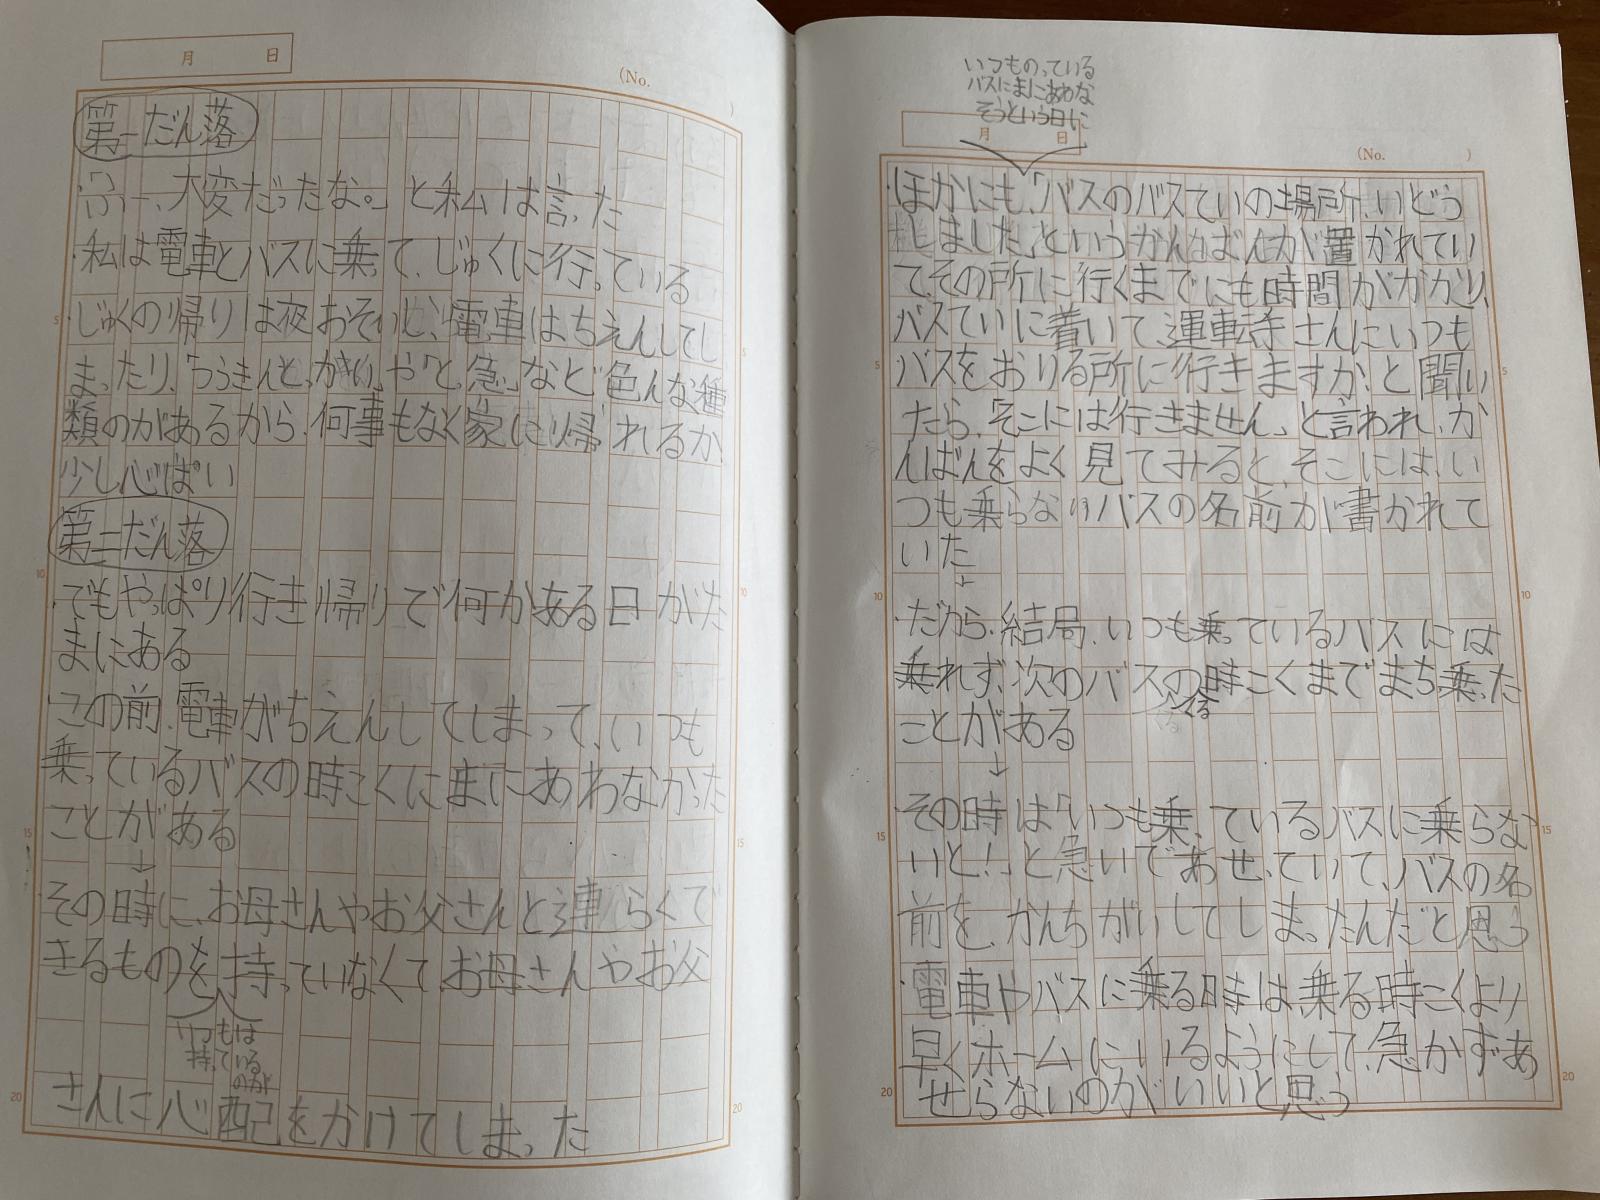 月 日
(No. )
第一だん落
「ふー、大変だったな。」と私は言った
・私は電車とバスに乗って、じゅくに行っている
・じゅくの帰りは夜おそいし、電車はちえんしてし
まったり、「つうきんとっかい」や「とっ急」など色んな種
類のがあるから、何事もなく家に帰れるか
少し心ぱい
第二だん落
・でもやっぱり行き帰りで何かある日がた
まにある
・この前、電車がちえんしてしまって、いつも
乗っているバスの時こくにまにあわなかった
ことがある
↓
その時に、お母さんやお父さんと連らくで
きるものを持っていなくて、お母さんやお父
いつもは
持っている
のが
さんに心配をかけてしまった
5
10
15
20
5
10
15
20
いつものっている
バスにまにあわな
そうという日に
月 日
(No. )
・ほかにも、「バスのバスていの場所、いどう
しました」というかんばんが置かれてい
て、その所に行くまでにも時間がかかり、
バスていに着いて、運転手さんにいつも
バスをおりる所に行きますか、と聞い
たら、「そこには行きません」と言われ、か
んばんをよく見てみると、そこには、い
つも乗らないバスの名前が書かれて
いた
↓
・だから、結局、いつも乗っているバスには
乗れず、次のバスの時こくまでまち、乗った
くる
ことがある
↓
その時は「いつも乗っているバスに乗らな
いと!」と急いであせっていて、バスの名
前を、かんちがいしてしまったんだと思う
・電車やバスに乗る時は、乗る時こくより
早くホームにいるようにして、急かずあ
せらないのがいいと思う
5
10
15
20
5
10
15
20